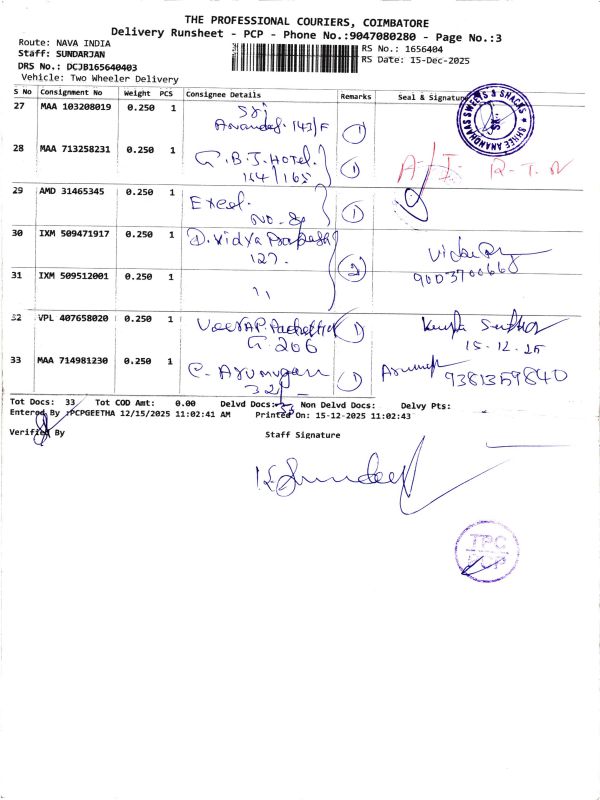 THE PROFESSIONAL COURIERS, COIMBATORE
Delivery Runsheet - PCP - Phone No.:9047080280 - Page No.:3
Route: NAVA INDIA
Staff: SUNDARJAN
DRS No.: DCJB165640403
Vehicle: Two Wheeler Delivery
RS No.: 1656404
RS Date: 15-Dec-2025
S No Consignment No Weight PCS Consignee Details Remarks Seal & Signature
SHREE ANANDHAAS SWEETS & SNACKS
27 MAA 103208019 0.250 1 Sri
143/F 1
28 MAA 713258231 0.250 1 G.B.J. Hotel.
164/165 1 R-T-N
29 AMD 31465345 0.250 1 Excel.
NO. 1
30 IXM 509471917 0.250 1 D. Vidya
127. 2
31 IXM 509512001 0.250 1 ,,
32 VPL 407658020 0.250 1
G. 206 1 15-12-25
33 MAA 714981230 0.250 1 C. Arumugam
321 1 9381359840
Tot Docs: 33 Tot COD Amt: 0.00 Delvd Docs: 33 Non Delvd Docs: Delvy Pts:
Entered By :PCPGEETHA 12/15/2025 11:02:41 AM Printed On: 15-12-2025 11:02:43
Verified By
Staff Signature
TPC
PCP